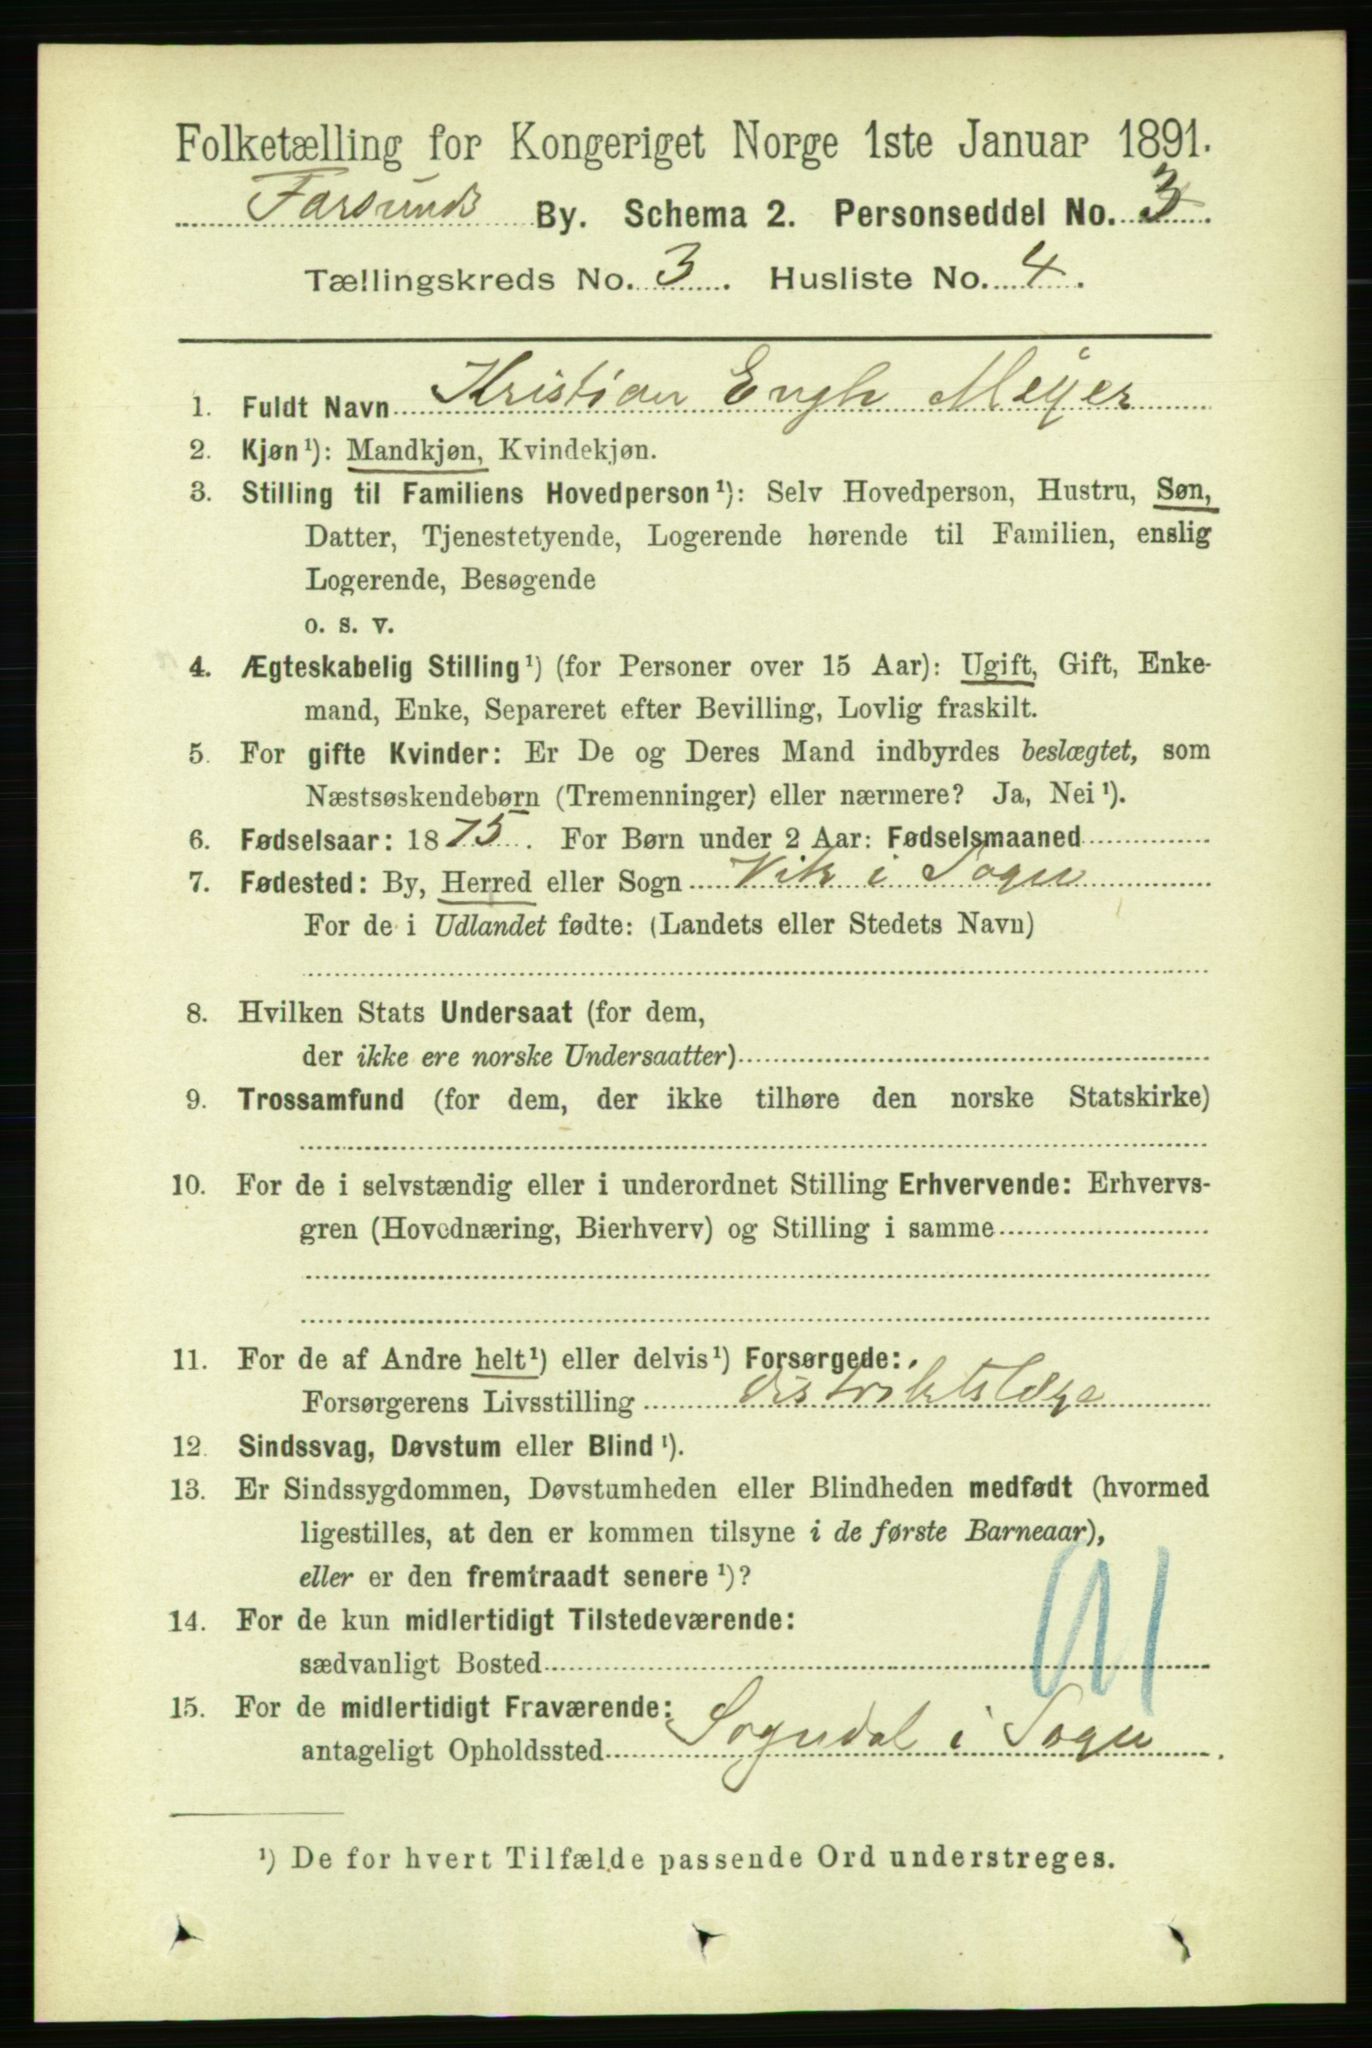 Folketælling for Kongeriget Norge 1ste Januar 1891.
Farsunds By. Schema 2. Personseddel No. 3.
Tællingskreds No. 3. Husliste No. 4.
1. Fuldt Navn Kristian Engh Meyer
2. Kjøn¹): Mandkjøn, Kvindekjøn.
3. Stilling til Familiens Hovedperson¹): Selv Hovedperson, Hustru, Søn,
Datter, Tjenestetyende, Logerende hørende til Familien, enslig
Logerende, Besøgende
o. s. v.
4. Ægteskabelig Stilling¹) (for Personer over 15 Aar): Ugift, Gift, Enke-
mand, Enke, Separeret efter Bevilling, Lovlig fraskilt.
5. For gifte Kvinder: Er De og Deres Mand indbyrdes beslægtet, som
Næstsøskendebørn (Tremenninger) eller nærmere? Ja, Nei¹).
6. Fødselsaar: 1875. For Børn under 2 Aar: Fødselsmaaned
7. Fødested: By, Herred eller Sogn Vik i Sogn
For de i Udlandet fødte: (Landets eller Stedets Navn)
8. Hvilken Stats Undersaat (for dem,
der ikke ere norske Undersaatter)
9. Trossamfund (for dem, der ikke tilhøre den norske Statskirke)
10. For de i selvstændig eller i underordnet Stilling Erhvervende: Erhvervs-
gren (Hovednæring, Bierhverv) og Stilling i samme
11. For de af Andre helt¹) eller delvis¹) Forsørgede:
Forsørgerens Livsstilling distriktslæge
12. Sindssvag, Døvstum eller Blind¹).
13. Er Sindssygdommen, Døvstumheden eller Blindheden medfødt (hvormed
ligestilles, at den er kommen tilsyne i de første Barneaar),
eller er den fremtraadt senere¹)?
14. For de kun midlertidigt Tilstedeværende:
sædvanligt Bosted
15. For de midlertidigt Fraværende:
antageligt Opholdssted Sogndal i Sogn.
¹) De for hvert Tilfælde passende Ord understreges.